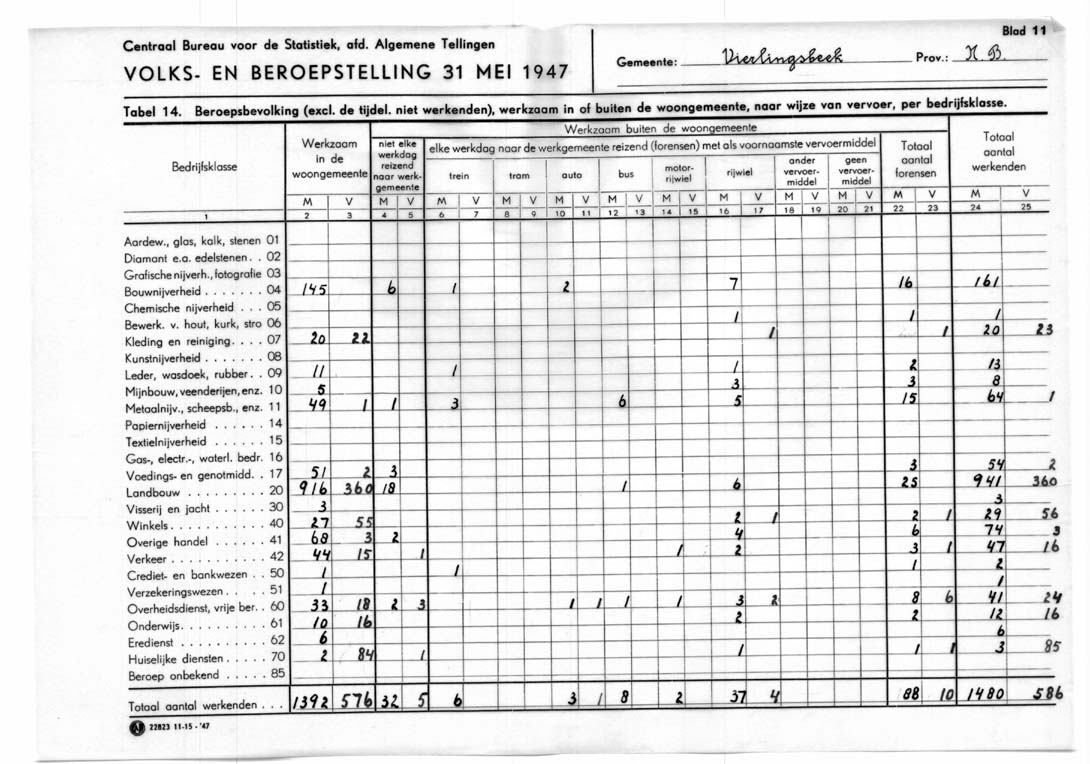 Centraal Bureau voor de Statistiek, afd. Algemene Tellingen
VOLKS- EN BEROEPSTELLING 31 MEI 1947
Blad 11
Gemeente: Vierlingsbeek Prov.: N.B.
Tabel 14. Beroepsbevolking (excl. de tijdel. niet werkenden), werkzaam in of buiten de woongemeente, naar wijze van vervoer, per bedrijfsklasse.
Bedrijfsklasse
Werkzaam in de woongemeente
Werkzaam buiten de woongemeente
niet elke werkdag reizend naar werk-gemeente
elke werkdag naar de werkgemeente reizend (forensen) met als voornaamste vervoermiddel
trein tram auto bus motor-rijwiel rijwiel ander vervoer-middel geen vervoer-middel
Totaal aantal forensen
Totaal aantal werkenden
M V M V M V M V M V M V M V M V M V M V M V M V
1 2 3 4 5 6 7 8 9 10 11 12 13 14 15 16 17 18 19 20 21 22 23 24 25
Aardew., glas, kalk, stenen 01
Diamant e.a. edelstenen . . 02
Grafische nijverh., fotografie 03
Bouwnijverheid . . . . . . . 04 145 6 1 2 7 16 161
Chemische nijverheid . . . 05
Bewerk. v. hout, kurk, stro 06 1 1 1
Kleding en reiniging. . . . 07 20 22 1 1 20 23
Kunstnijverheid . . . . . . . 08
Leder, wasdoek, rubber. . 09 11 1 1 2 13
Mijnbouw, veenderijen, enz. 10 5 3 3 8
Metaalnijv., scheepsb., enz. 11 49 1 1 3 6 5 15 64 1
Papiernijverheid . . . . . . 14
Textielnijverheid . . . . . . 15
Gas-, electr.-, waterl. bedr. 16
Voedings- en genotmidd. . 17 51 2 3 3 54 2
Landbouw . . . . . . . . . 20 916 360 18 1 6 25 941 360
Visserij en jacht . . . . . . 30 3 3
Winkels. . . . . . . . . . . 40 27 55 2 1 2 1 29 56
Overige handel . . . . . . 41 68 3 2 4 6 74 3
Verkeer . . . . . . . . . . . 42 44 15 1 1 2 3 1 47 16
Crediet- en bankwezen . . 50 1 1 1 2
Verzekeringswezen. . . . . 51 1 1
Overheidsdienst, vrije ber. . 60 33 18 2 3 1 1 1 1 3 2 8 6 41 24
Onderwijs. . . . . . . . . . 61 10 16 2 2 12 16
Eredienst . . . . . . . . . . 62 6 6
Huiselijke diensten . . . . . 70 2 84 1 1 1 1 3 85
Beroep onbekend . . . . . 85
Totaal aantal werkenden . . . 1392 576 32 5 6 3 1 8 2 37 4 88 10 1480 586
22823 11-15-'47